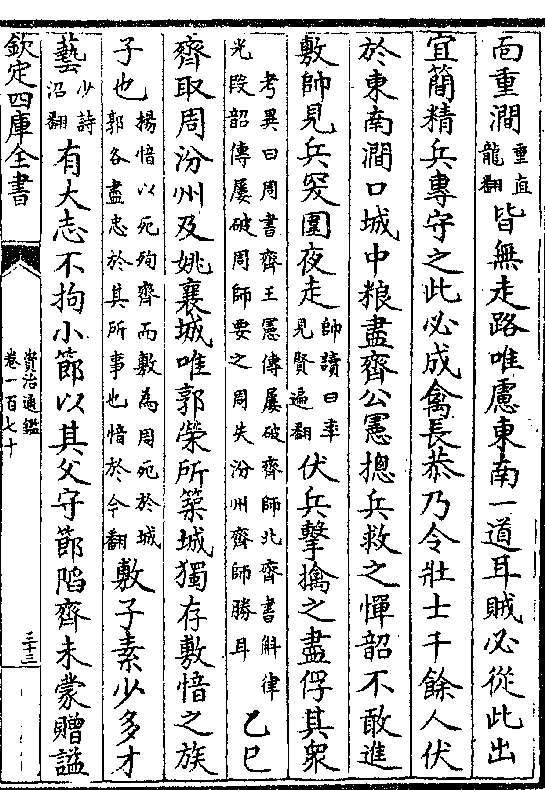 面重澗重直龍翻皆無走路唯慮東南一道耳賊必從此出
宜簡精兵專守之此必成禽長恭乃令壯士千餘人伏
於東南澗口城中粮盡齊公憲摠兵救之憚韶不敢進
敷帥見兵突圍夜走帥讀曰率見賢遍翻伏兵擊擒之盡俘其衆
考異曰周書齊王憲傳屢破齊師北齊書斛律光段韶傳屢破周師要之周失汾州齊師勝耳乙巳
齊取周汾州及姚襄城唯郭榮所築城獨存敷愔之族
子也楊愔以死殉齊而敷為周死於城郭各盡忠於其所事也愔於今翻敷子素少多才
藝少詩沼翻有大志不拘小節以其父守節陷齊未蒙贈謚
欽定四庫全書
資治通鑑
卷一百七十
三十三